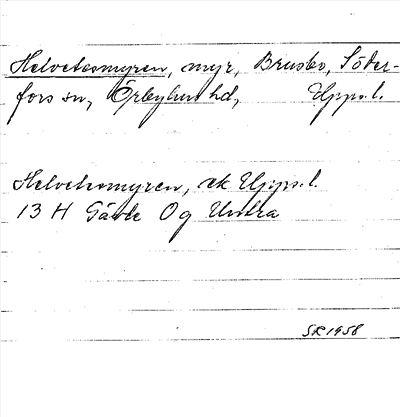 Helvetesmyren, myr, Brusbo, Söder-
fors sn, Örbyhus hd, Upps. l.
Helvetesmyren, ek Upps. l.
13 H Gävle Og Untra
SR 1958